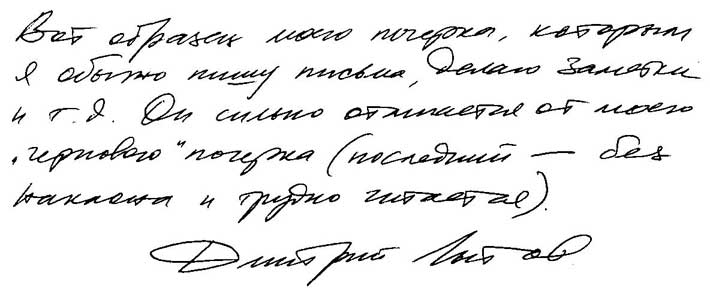 Вот образец моего почерка, которым
я обычно пишу письма, делаю заметки
и т.д. Он сильно отличается от моего
„чернового" почерка (последний — без
наклона и трудно читается).
Дмитрий Лытов